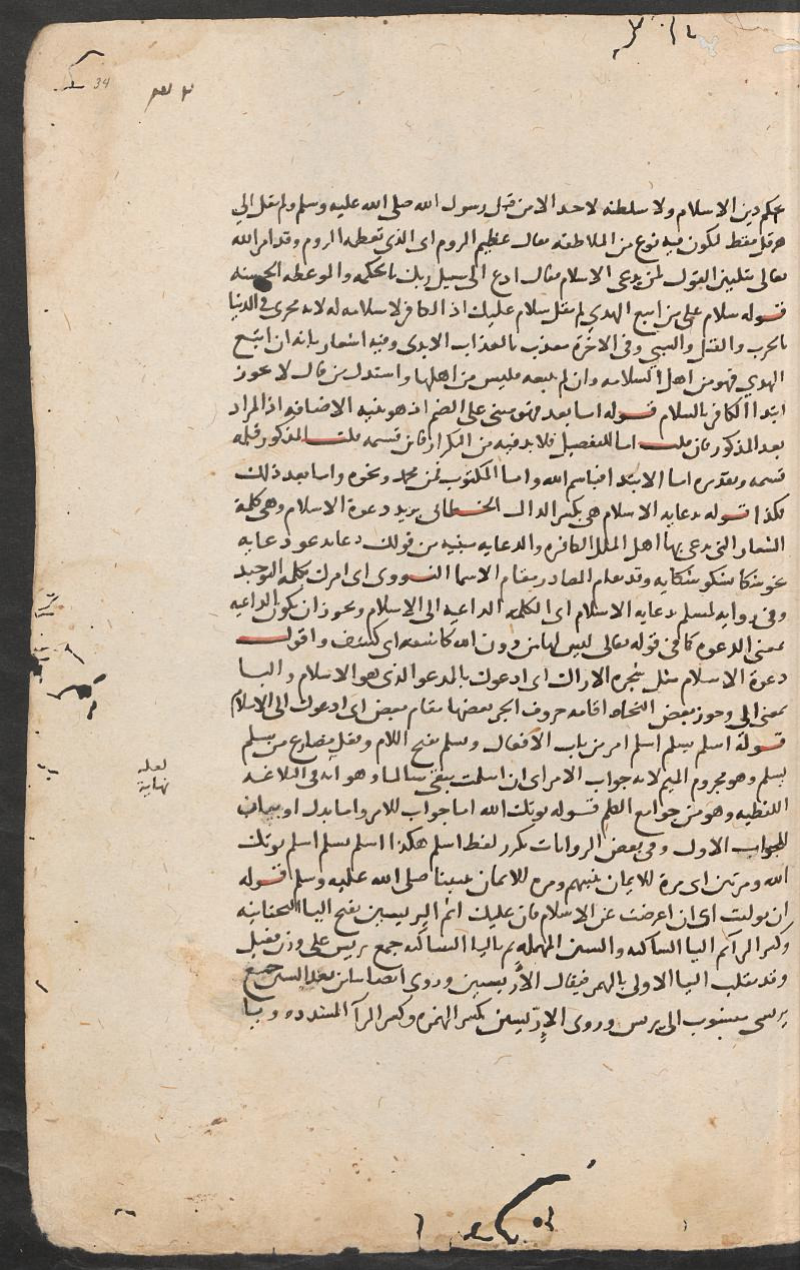 34
بحكم دين الاسلام ولا سلطنة لاحد الا من قبل رسول الله صلى الله عليه وسلم ولم يقل الى
هرقل فقط لكون فيه نوع من الملاطفة فقال عظيم الروم اى الذي تعظمه الروم وقد امر الله
تعالى بتليين القول لمن يدعى الاسلام فقال ادع الى سبيل ربك بالحكمة والموعظة الحسنة
قوله سلام على من اتبع الهدي لم يقل سلام عليك اذ الكافر لا سلامة له لانه مخزى فى الدنيا
بالحرب والقتل والسبي وفى الاخرة معذب بالعذاب الابدى وفيه اشعار بانه ان اتبع
الهدي فهو من اهل السلامه وان لم يتبعه فليس من اهلها واستدل من قال لا يجوز
ابتدا الكافر بالسلام قوله اما بعد فهو مبنى على الضم اذ هو بنية الاضافة اذ المراد
بعد المذكور فان قلت اما للتفصيل فلا بد فيه من التكرار فاين قسيمه قلت المذكور قبله
قسمه وتقديره اما الابتدا فباسم الله واما المكتوب فمن محمد ونحوه واما بعد ذلك
فكذا قوله بدعاية الاسلام هى بكسر الدال الخطابى يريد دعوة الاسلام وهى كلمة
الشعار التى يدعى بها اهل الملل الكافرة والدعاية مبنية من قولك دعا يدعو دعاية
نحو شكا يشكو شكاية وقد تقام المصادر مقام الاسما النووى اى امرك بكلمة التوحيد
وفى رواية لمسلم بداعية الاسلام اى الكلمة الداعية الى الاسلام ويجوز ان يكون الداعية
بمعنى الدعوة كما فى قوله تعالى ليس لها من دون الله كاشفة اى كشف واقول
دعوة الاسلام مثل شجرة الاراك اى ادعوك بالمدعو الذى هو الاسلام والبا
بمعنى الى وجوز بعض النحاة اقامة حروف الجر بعضها مقام بعض اى ادعوك الى الاسلام
قوله اسلم تسلم اسلم امر من باب الافعال وتسلم بفتح اللام وفعل مضارع من سلم
يسلم وهو مجزوم الميم لانه جواب الامر اى ان اسلمت تبقى سالما وهو اية فى البلاغة
لعله
نهاية
اللفظية وهو من جوامع الكلم قوله يوتك الله اما جواب للامر واما بدل او بيان
للجواب الاول وفى بعض الروايات تكرر لفظ اسلم هكذا اسلم تسلم اسلم يوتك
الله ومرتين اى مرة للايمان بنبيهم ومرة للايمان بنبينا صلى الله عليه وسلم قوله
ان توليت اى ان اعرضت عن الاسلام فان عليك اثم اليريسين بفتح اليا التحتانية
وكسر الرا ثم اليا الساكنة والسين المهملة ثم باليا الساكنة جمع يريس على وزن فعيل
وقد تقلب اليا الاولى بالهمز فيقال الأريسين وروى ايضا بيائين بعد السين جمع
يريسى منسوب الى يريس وروى الإريسين بكسر الهمزة وكسر الرآ المشددة وبيا